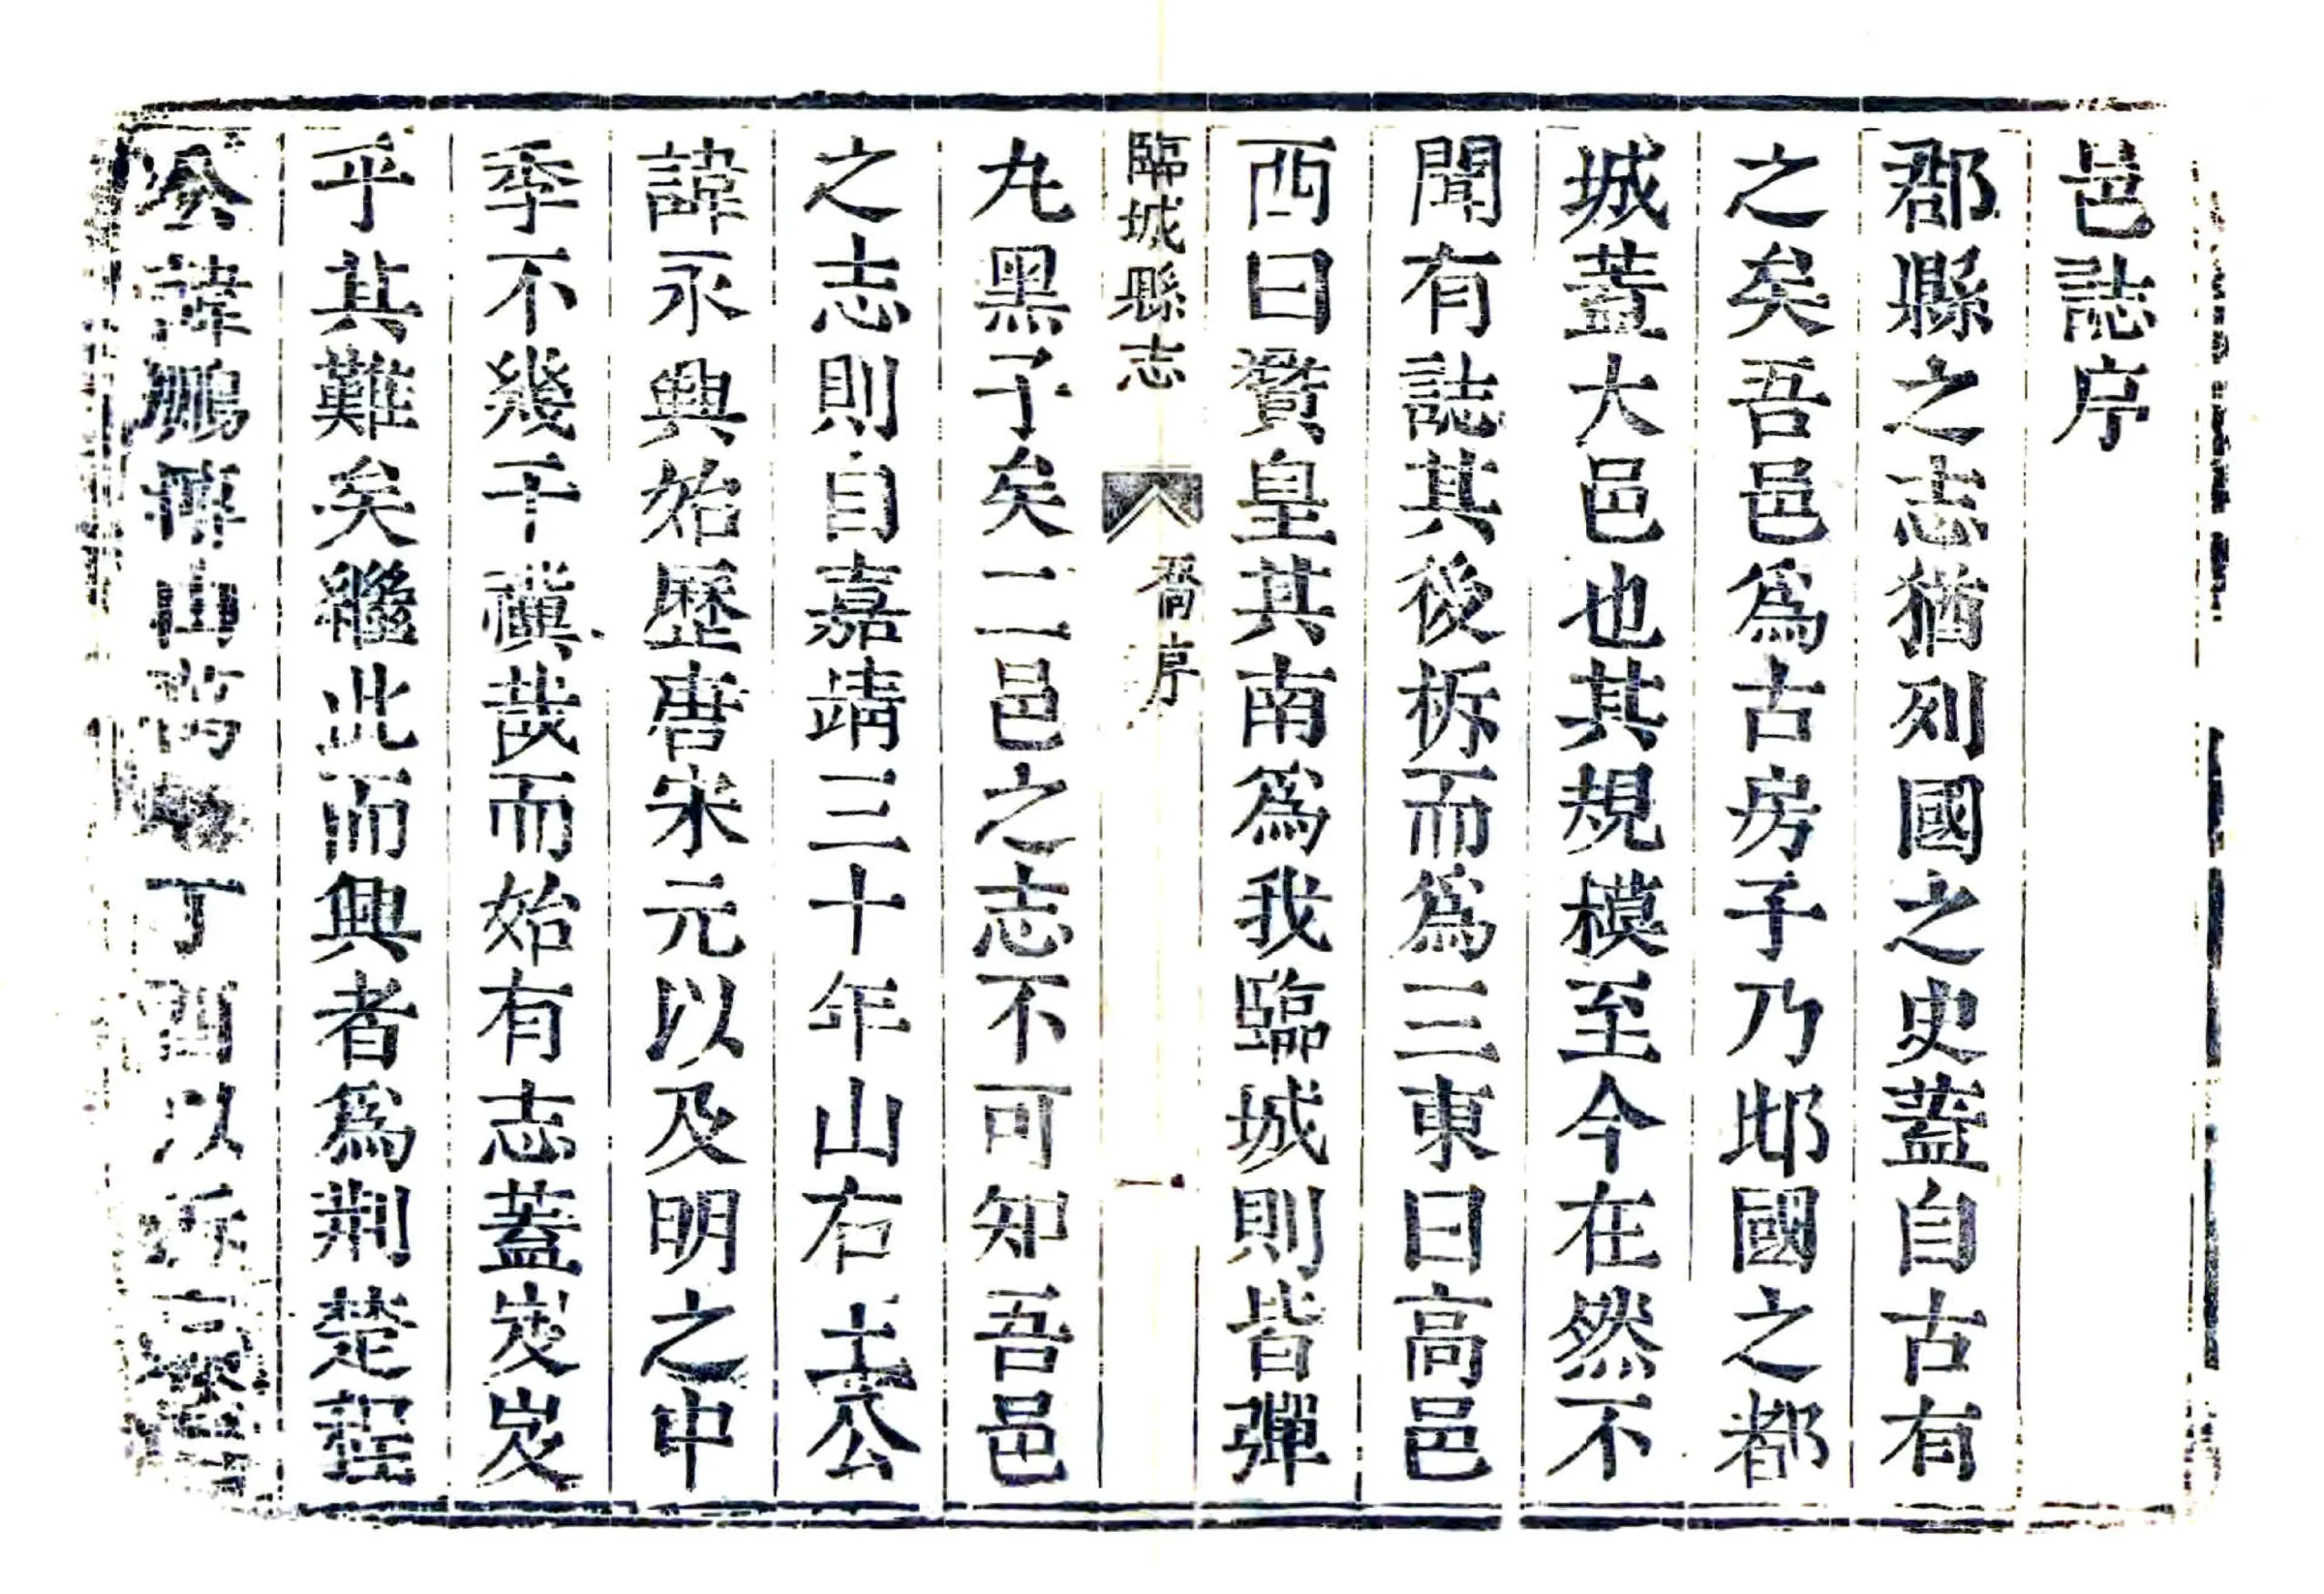 邑誌序
郡縣之志猶列國之史蓋自古有
之矣吾邑爲古房子乃邶國之都
城蓋大邑也其規模至今在然不
聞有誌其後柝而爲三東曰高邑
西曰贊皇其南爲我臨城則皆彈
臨城縣志 喬序 一
丸黑子矣二邑之志不可知吾邑
之志則自嘉靖三十年山右土公
諱永興始歷唐宋元以及明之中
季不幾千禩哉而始有志蓋岌岌
乎其難矣繼此而興者爲荆楚程
公諱鵬摶山 丁酉以